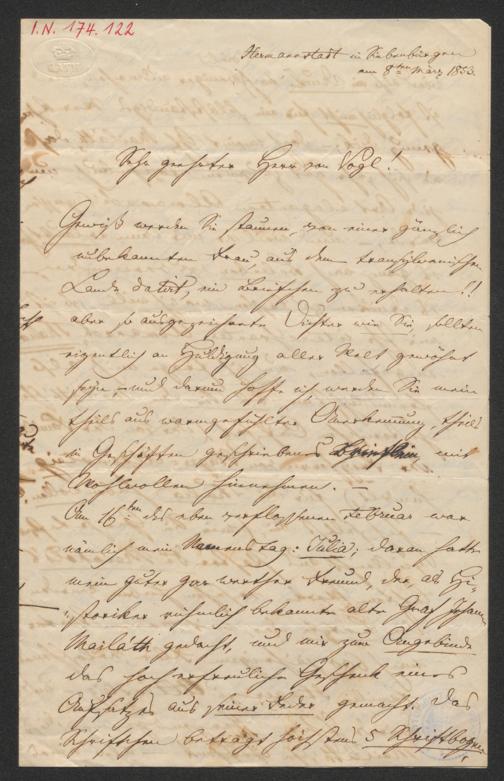 I.N. 174.122
Hermannstadt in Siebenbürgen
am 8ten März 1853.
Sehr geehrter Herr von Vogl!
Gewiß werden Sie staunen, von einer gänzlich
unbekannten Frau, aus dem transsylvanischen
Lande datirt, ein Briefchen zu erhalten!!
aber so ausgezeichnete Dichter wie Sie, sollten
eigentlich an Huldigung aller Welt gewöhnt
seyn, – und darum hoffe ich, werden Sie mein
theils aus warmgefühlter Anerkennung, theils
in Geschäften geschriebenes Brieflein, mit
Wohlwollen hinnehmen. –
Am 16ten des eben verflossenen Februar war
nämlich mein Namenstag: Julia; daran hatte
mein guter gar werther Freund, der als Hi-
storiker rühmlich bekannte alte Graf Johann
Mailáth gedacht, und mir zum Angebinde
das hocherfreuliche Geschenk eines
Aufsatzes aus seiner Feder gemacht. Das
Schriftchen beträgt höchstens 5 Schriftbogen,